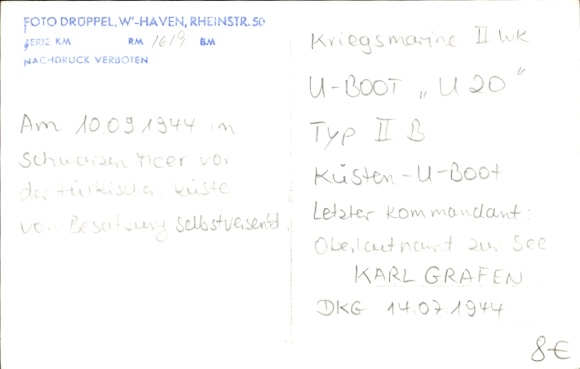 FOTO DRÜPPEL, W'-HAVEN, RHEINSTR. 50
SERIE KM RM 1619 BM
NACHDRUCK VERBOTEN
Am 10.09.1944 im
Schwarzen Meer vor
der türkischen Küste
von Besatzung selbstversenkt
Kriegsmarine II WK
U-BOOT „U 20"
Typ II B
Küsten-U-Boot
Letzter Kommandant:
Oberleutnant zur See
KARL GRAFEN
DKG 14.07.1944
8€